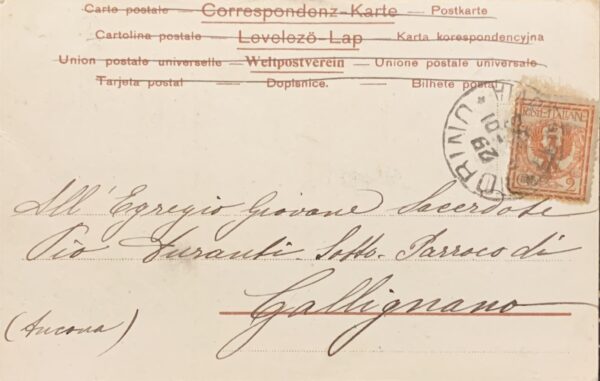 Carte postale — Correspondenz-Karte — Postkarte
Cartolina postale — Levelező-Lap — Karta korespondencyjna
Union postale universelle — Weltpostverein — Unione postale universale
Tarjeta postal — Dopisnice. — Bilhete postal
POSTE ITALIANE
2
URBINO
29
All' Egregio Giovane Sacerdote
Pio Duranti Sotto-Parroco di
Gallignano
(Ancona)